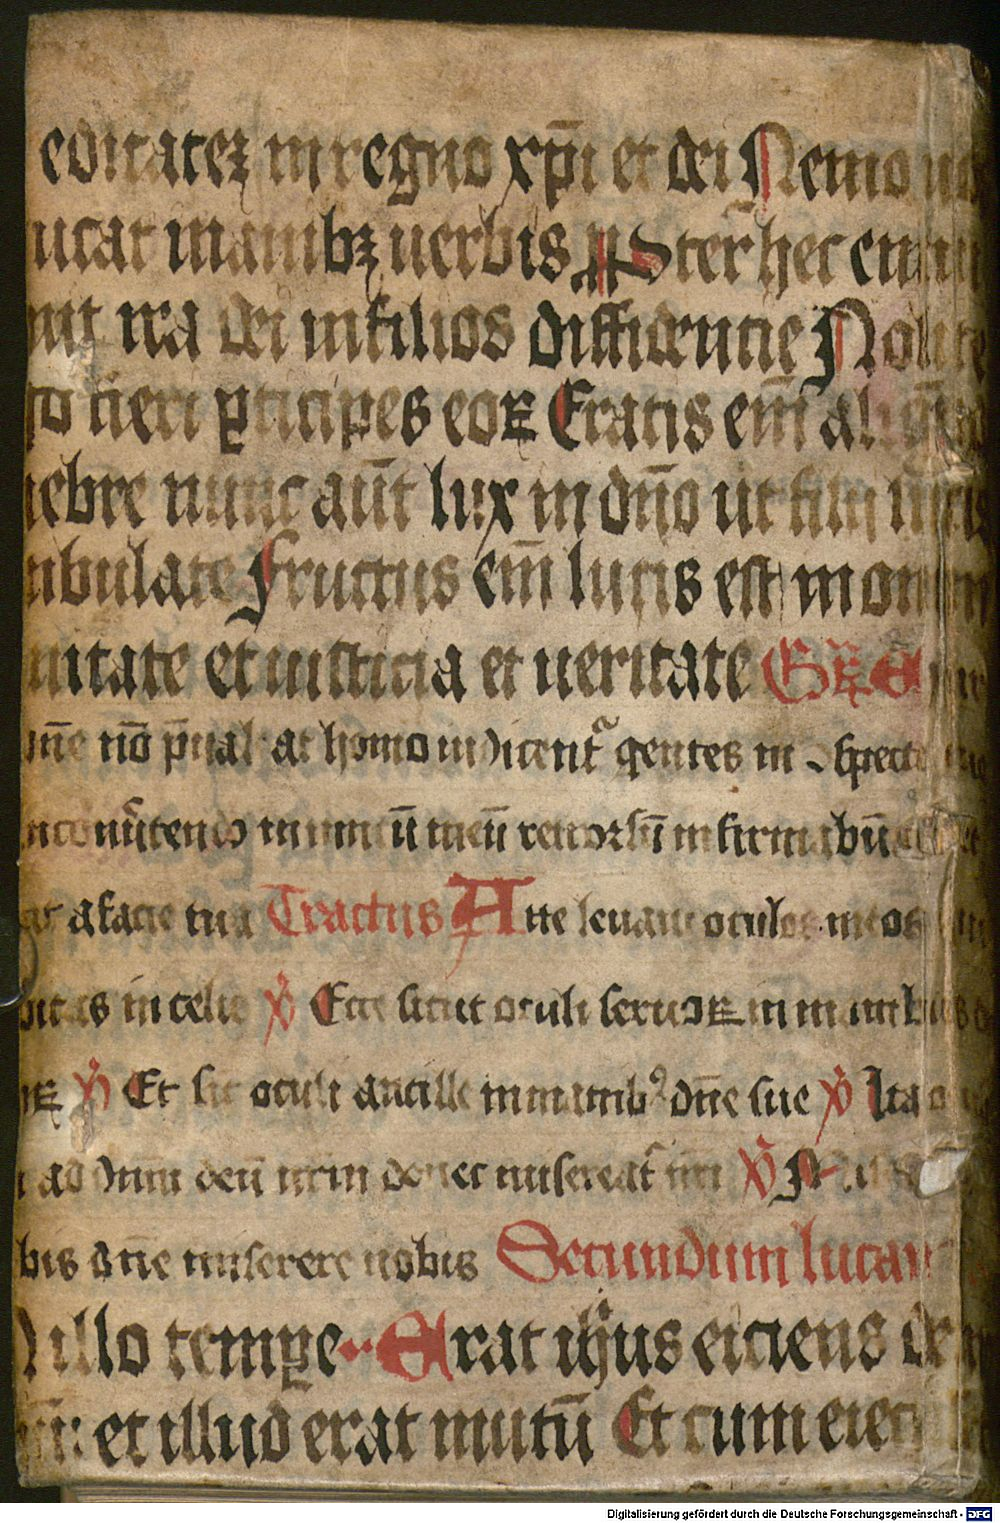 editatez in regno xp̄i et dei Nemo uos
ucat inanibꝫ uerbis ꝓpter hec enim
nit ira dei in filios diffidentie Nolite
go fieri ꝑticipes eoꝝ Eratis eni̅ aliqn̅
nebre nunc aut̅ lux in dn̅o ut filii lucis
mbulate Fructus eni̅ lucis est in om
nitate et iusticia et ueritate Gr̄
n̅e no̅ p̄ual at homo iudicent᷑ gentes in
in co̅uertendo inimicu̅ meu̅ retrorsu̅ infirmabu̅t
a facie tua Tractus Ad te leuaui oculos meos
bitas in celis ℣ Ecce sicut oculi seruoꝝ in manibus
℣ Et sic oculi ancille in manibꝰ dn̅e sue ℣ Ita
ad dnm̅ deu̅ nr̅m donec misereat᷑ nr̅i ℣
bis dn̅e miserere nobis Secundum lucam
illo tempꝑe Erat ih̅us eiciens de
et illud erat mutu̅ Et cum eiec
Digitalisierung gefördert durch die Deutsche Forschungsgemeinschaft - DFG